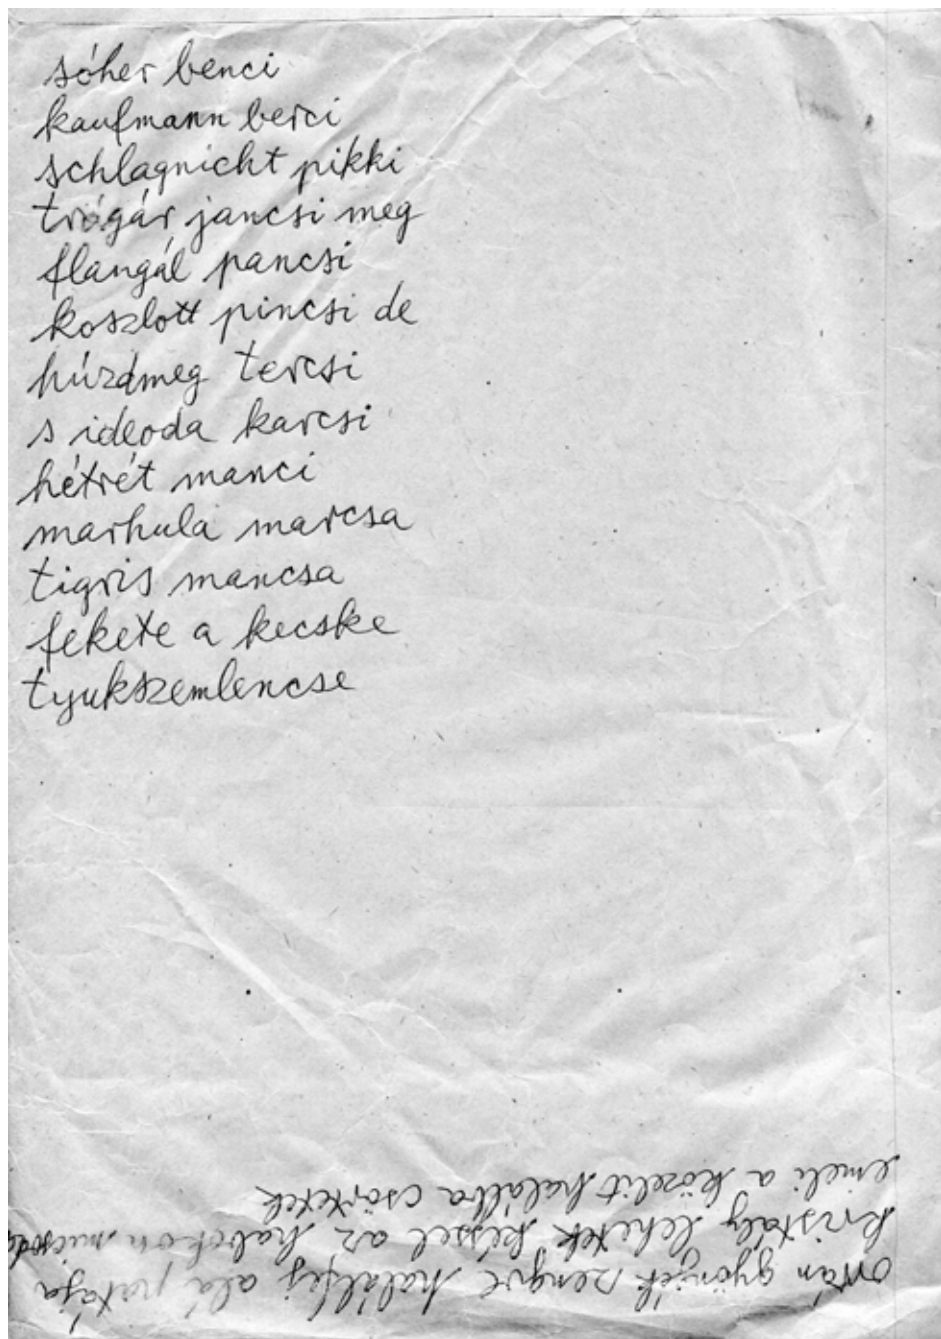 sóher benci
kaufmann berci
schlagnicht pikki
trógár jancsi meg
flangál pancsi
koszlott pincsi de
húzdmeg tercsi
s ideoda karcsi
hétrét manci
marhula marcsa
tigris mancsa
fekete a kecske
tyukszemlencse
gyöngék zengve halálfej alá patája
kristály lehetek késsel az habokon
emeli a közelit halálba csörtetek